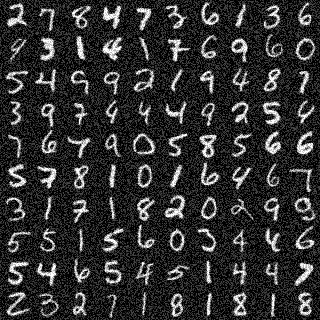 2 7 8 4 7 3 6 1 3 6
9 3 1 4 1 7 6 9 6 0
5 4 9 9 2 1 9 4 8 7
3 9 7 9 4 4 9 2 5 4
7 6 7 9 0 5 8 5 6 6
5 7 8 1 0 1 6 4 6 7
3 1 7 1 8 2 0 2 9 9
5 5 1 5 6 0 3 4 4 6
5 4 6 5 4 5 1 4 4 7
2 3 2 7 1 8 1 8 1 8